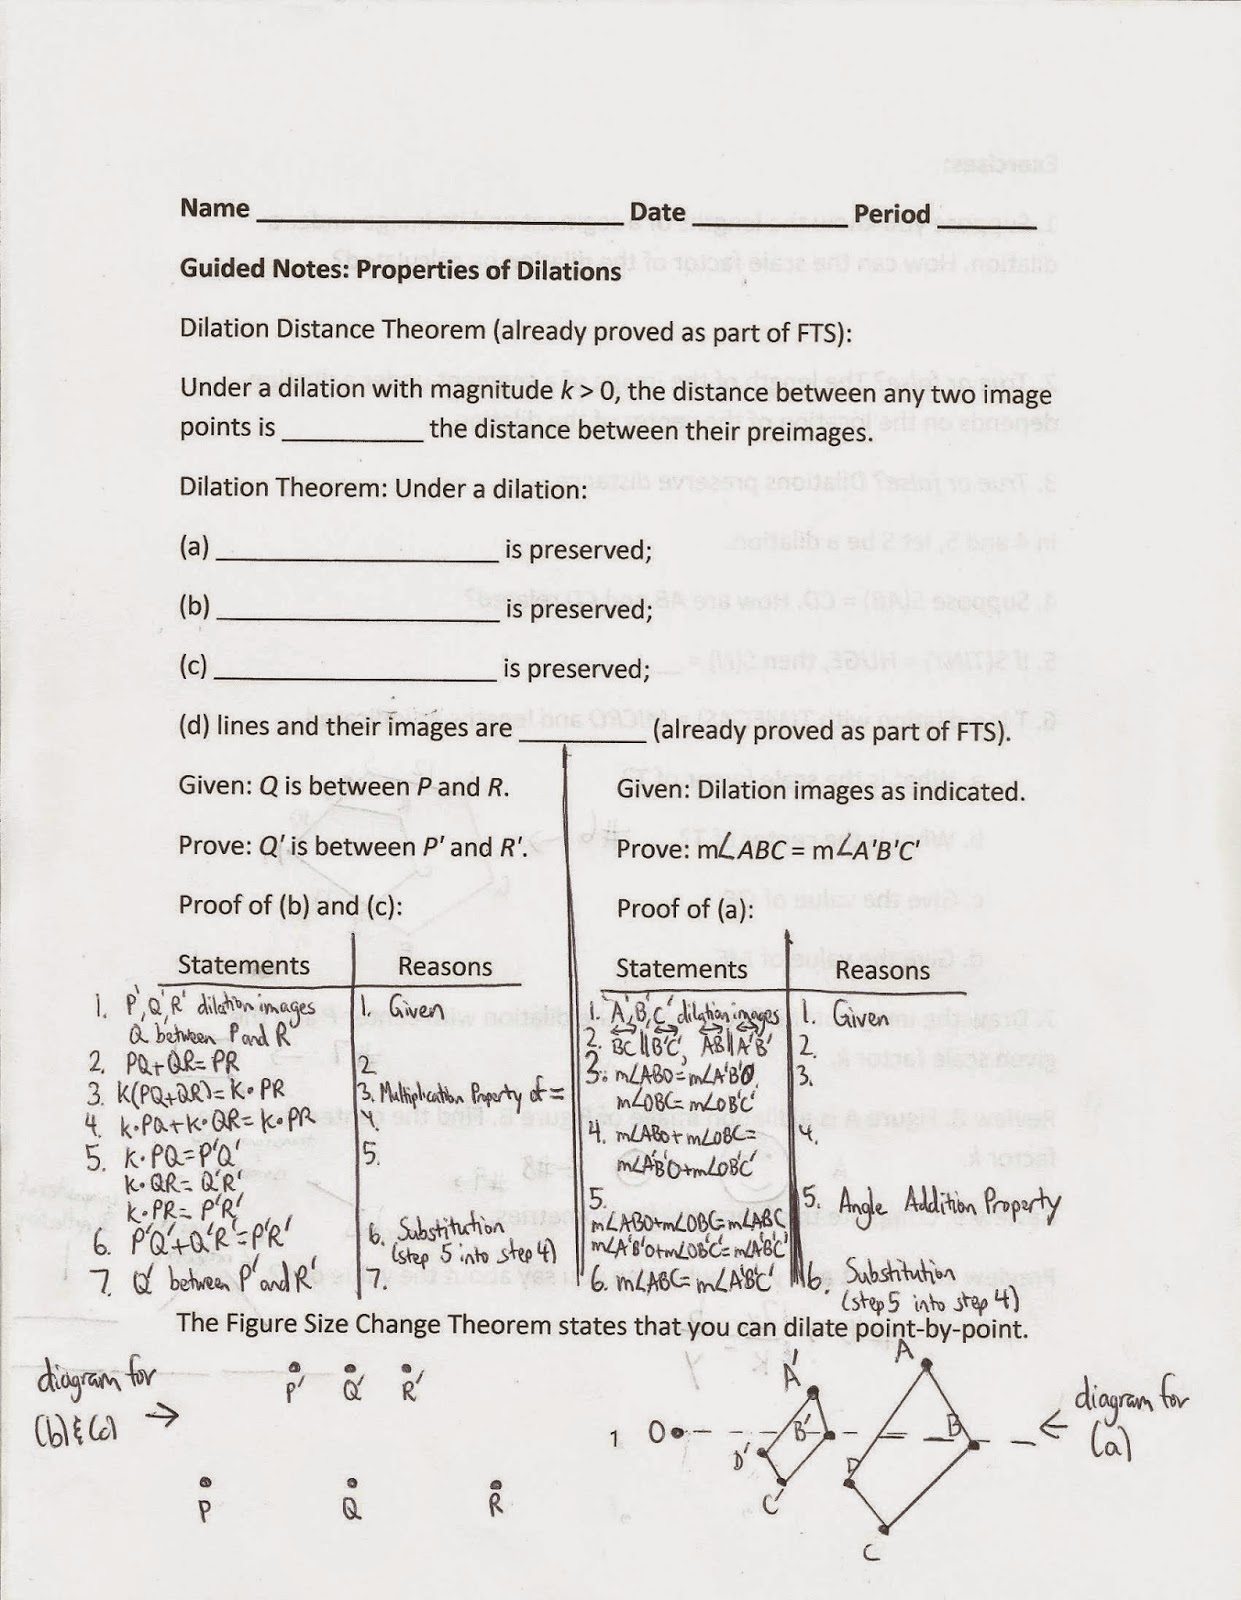 Name ____________ Date ____________ Period ________
Guided Notes: Properties of Dilations
Dilation Distance Theorem (already proved as part of FTS):
Under a dilation with magnitude k > 0, the distance between any two image
points is __________ the distance between their preimages.
Dilation Theorem: Under a dilation:
(a) ____________________ is preserved;
(b) ____________________ is preserved;
(c) ____________________ is preserved;
(d) lines and their images are _________ (already proved as part of FTS).
Given: Q is between P and R.
Prove: Q' is between P' and R'.
Proof of (b) and (c):
Statements Reasons
1. P', Q', R' dilation images 1. Given
Q between P and R
2. PQ+QR=PR 2
3. K(PQ+QR)=K•PR 3. Multiplication Property of =
4. k•PQ+k•QR=k•PR 4.
5. k•PQ=P'Q' 5.
k•QR=Q'R'
k•PR=P'R'
6. P'Q'+Q'R'=P'R' 6. Substitution
(step 5 into step 4)
7. Q' between P' and R' 7.
Given: Dilation images as indicated.
Prove: m∠ABC = m∠A'B'C'
Proof of (a):
Statements Reasons
1. A', B', C' dilation images 1. Given
2. BC||B'C', AB||A'B' 2.
3. m∠ABO=m∠A'B'O, 3.
m∠OBC=m∠OB'C'
4. m∠ABO+m∠OBC= 4.
m∠A'B'O+m∠OB'C'
5. 5. Angle Addition Property
m∠ABO+m∠OBC=m∠ABC
m∠A'B'O+m∠OB'C'=m∠A'B'C'
6. m∠ABC=m∠A'B'C' 6. Substitution
(step 5 into step 4)
The Figure Size Change Theorem states that you can dilate point-by-point.
diagram for
(b)&(c) →
P' Q' R'
P Q R
1
O
A' A
B' B
D' D
C'
C
← diagram for
(a)